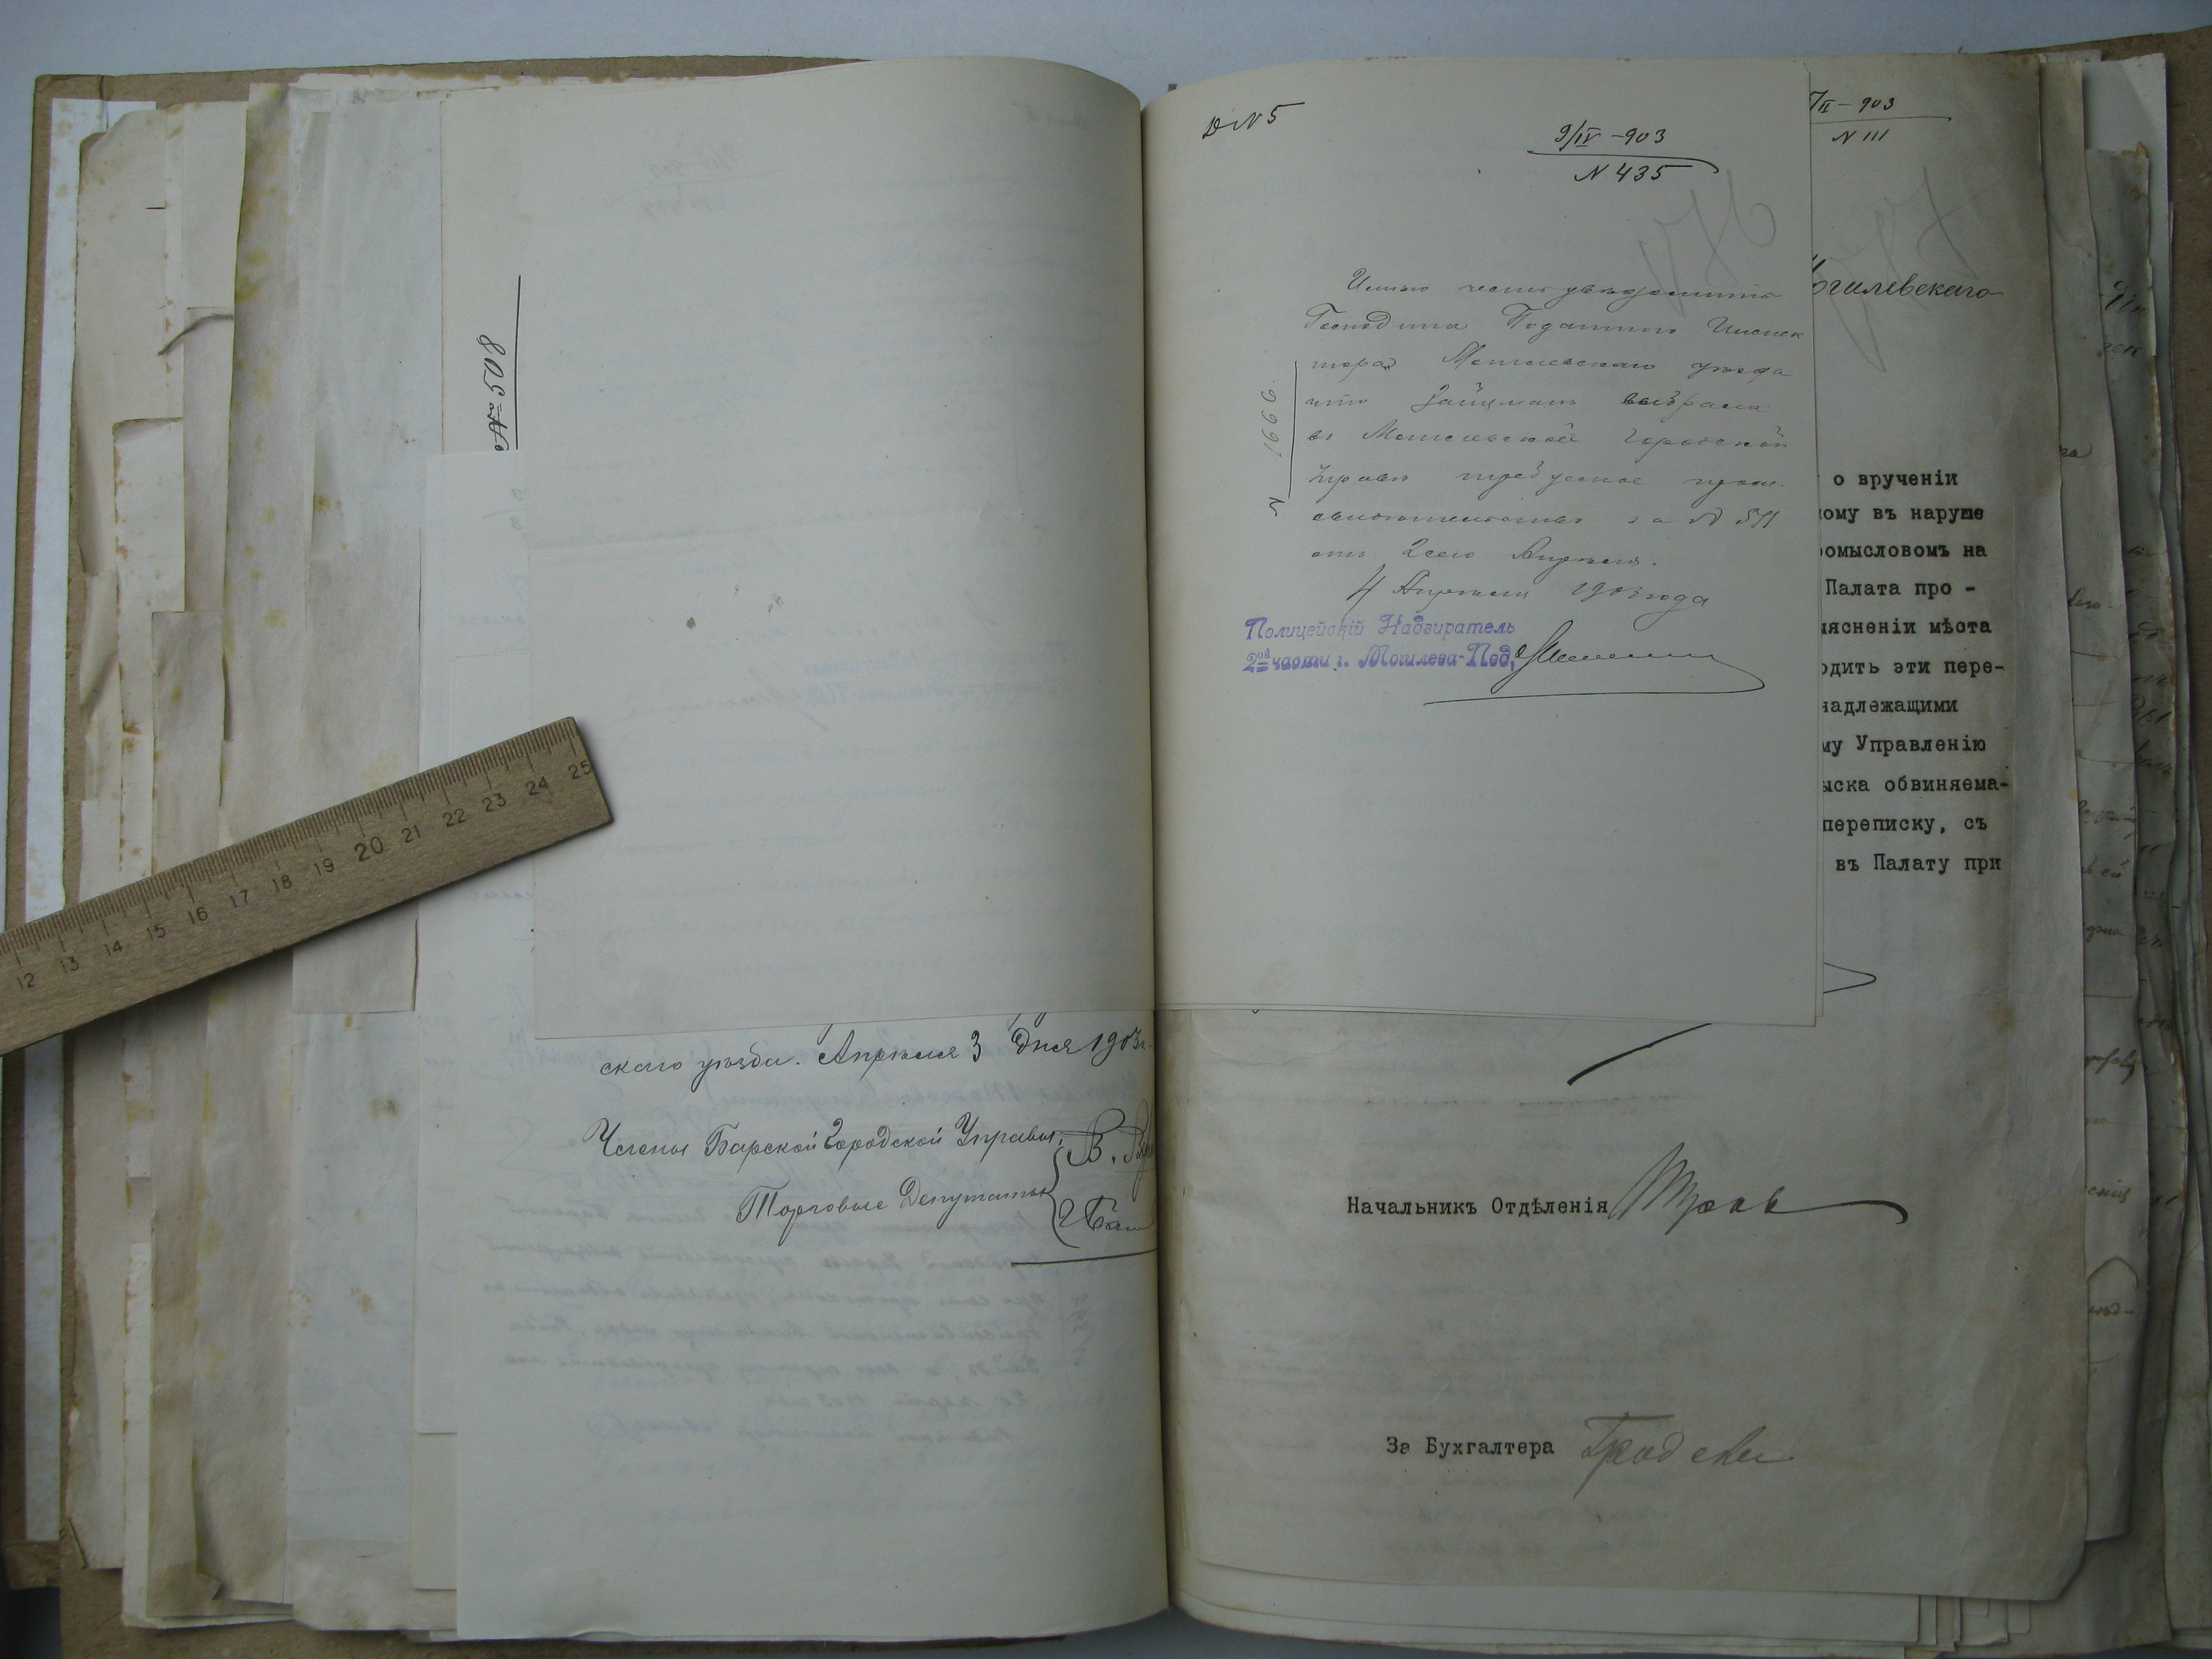 № 508
скаго уѣзда. Апрѣля 3 дня 1903г.
Члены Барской Городской Управы:
Торговые Депутаты
В.
D N 5
9/IV -903
N 435
N 1666.
Имѣю честь увѣдомить
Господина Податного Инспек
тора Могилевскаго уѣзда
что Зайцманъ выбрала
въ Могилевской Городской
Управѣ требуемое пром.
свидѣтельство за № 511
отъ 2сего Апрѣля.
4 Апрѣля 1903 года
Полицейскій Надзиратель
2ой части г. Могилева-Под.
II - 903
N 111
огилевскаго
о врученіи
ому въ наруше
омысловомъ на
Палата про -
ясненіи мѣста
одить эти пере-
надлежащими
му Управленію
ыска обвиняема-
переписку, съ
въ Палату при
Начальникъ Отдѣленія
За Бухгалтера
12 13 14 15 16 17 18 19 20 21 22 23 24 25